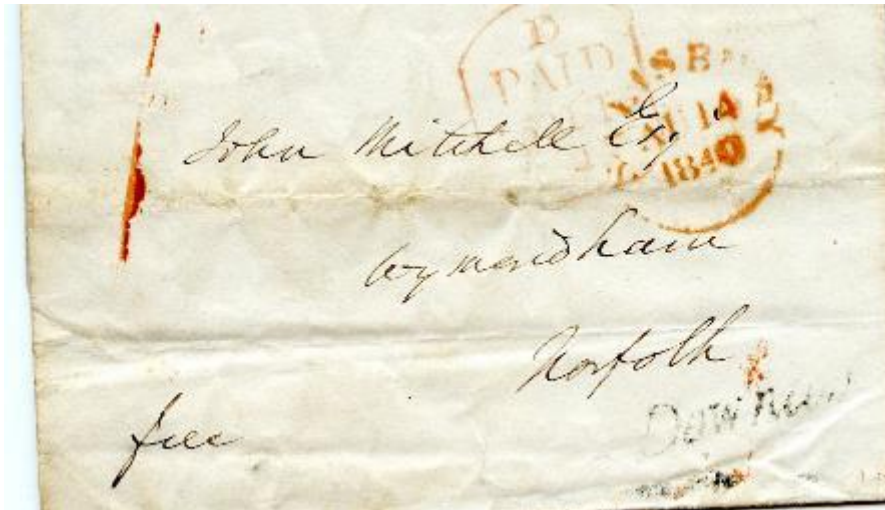 P
PAID
14
1840
John Mitchell Esq
Wymondham
Norfolk
free